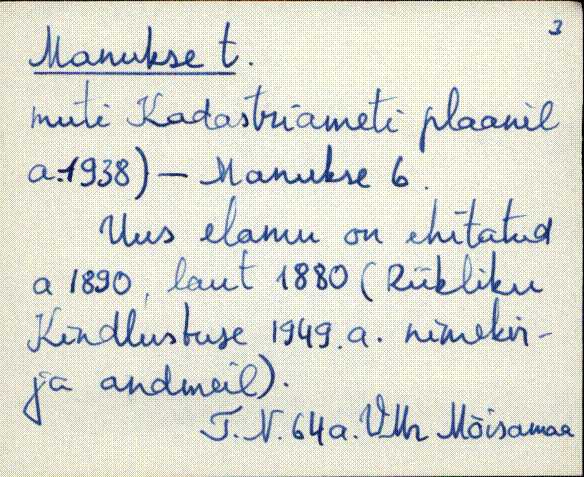 3
Manukse t.
nuti Kadastriameti plaanil
a.1938) — Manukse 6.
Uus elamu on ehitatud
a 1890, laut 1880 (Riikliku
Kindlustuse 1949.a. nimekir-
ja andmeil).
T.N. 64a. Mõisamaa